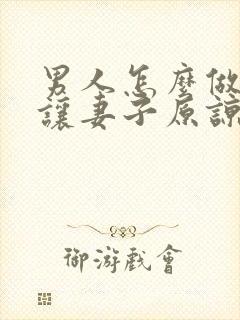 男人怎麼做
讓妻子原諒
御游戲會